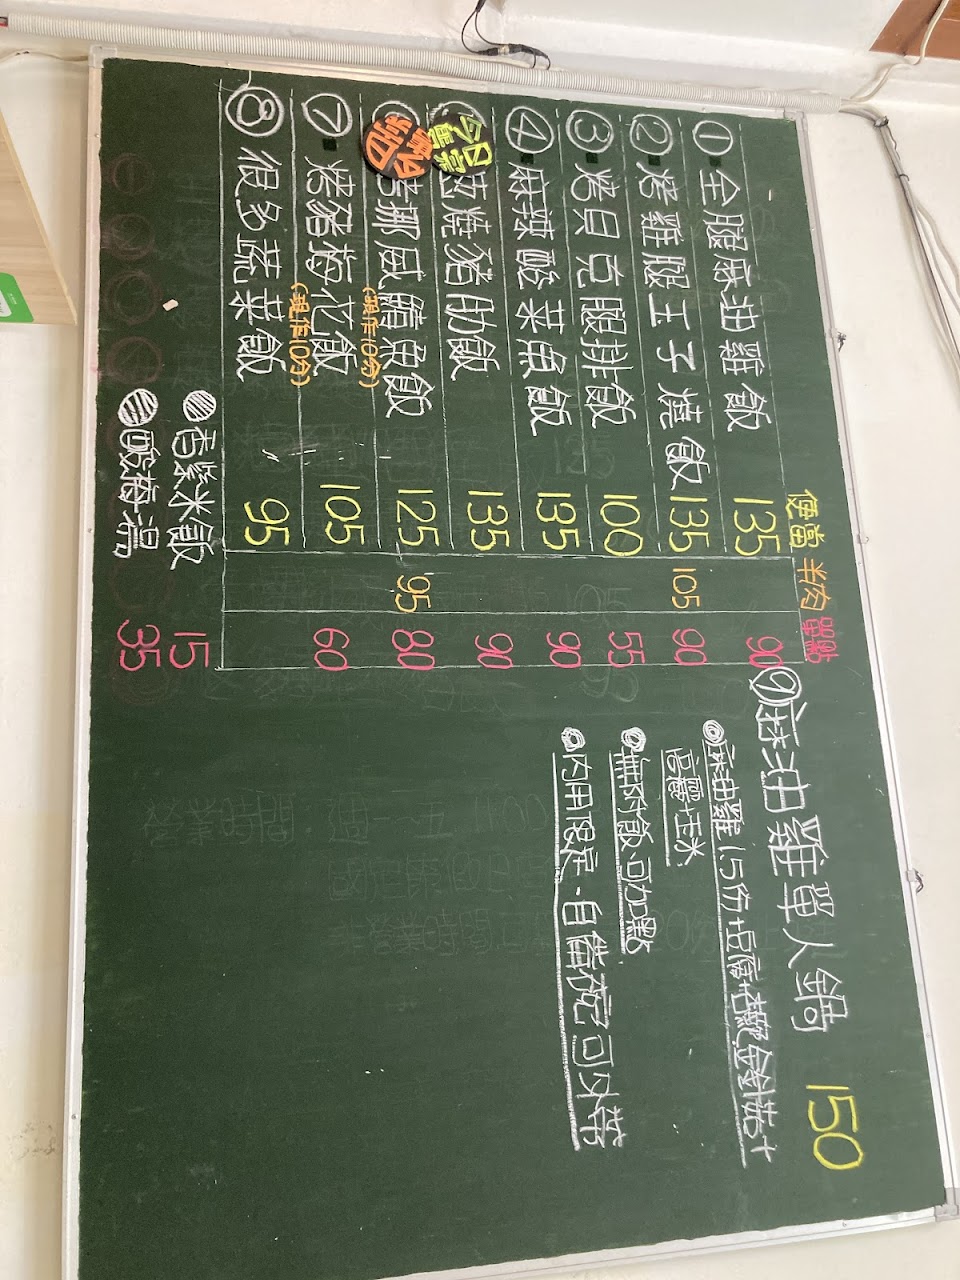 便當 半肉 單點
① 全腿麻油雞飯 135 90
② 烤雞腿玉子燒飯 135 105 90
③ 烤貝克腿排飯 100 55
④ 麻辣酸菜魚飯 135 90
燒豬肋飯 135 90
今日
挪威鯖魚飯 125 95 80
(現作10分)
⑦ 烤豬梅花飯 105 60
(現作10分)
⑧ 很多蔬菜飯 95
香紫米飯 15
酸梅湯 35
⑨ 麻油雞單人鍋 150
麻油雞1.5份+豆腐+老薑+金針菇+
高麗+玉米
無附飯.可加點
內用限定.自備碗可外帶
營業時間 週一~五